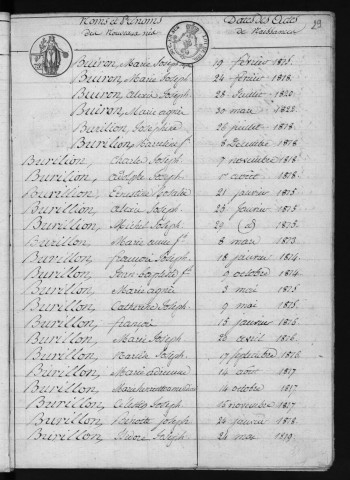 29
Noms et Prénoms des Nouveaux nés
Dates des Actes de Naissances
Buiron, Marie Joseph 19 février 1815.
Buiron, Marie Joseph 24 février 1818.
Buiron, Alexis Joseph. 28 Juillet 1820.
Buiron, Marie agnès 30 mai 1822.
Burillon, Josephine 26 juillet 1818.
Burillon, 8 Decembre 1818.
Burillon, Charles Joseph 7 novembre 1818.
Burillon, Adolphe Joseph 1er aout 1818.
Burillon, 21 janvier 1813.
Burillon, Joseph. 23 février 1813.
Burillon, Michel Joseph. 29 (d) 1813.
Burillon, Marie anne 8 mars 1813.
Burillon, françois Joseph 18 janvier 1814.
Burillon, Jean baptiste 9 octobre 1814.
Burillon, Marie agnès 3 mai 1815
Burillon, Catherine Joseph. 9 mai 1815.
Burillon, françois 15 janvier 1816.
Burillon, Marie Joseph 26 avril 1816.
Burillon, Joseph. 17 septembre 1816.
Burillon, Marie 14 août 1817
Burillon, 14 octobre 1817.
Burillon, Joseph 15 novembre 1817.
Burillon, Benoît Joseph 24 janvier 1818.
Burillon, Joseph 24 mai 1819.